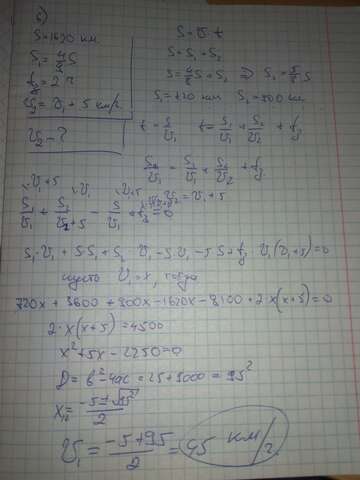 6)
S=1620 км
S₁ = 4/9 S
t₃ = 2 ч
V₂ = V₁ + 5 км/ч
V₂ - ?
S = V t
S = S₁ + S₂
S = 4/9 S + S₂ ⇒ S₂ = 5/9 S
S₁ = 720 км S₂ = 900 км
t = S/V₁ t = S₁/V₁ + S₂/V₂ + t₃
S/V₁ = S₁/V₁ + S₂/V₂ + t₃
V₂ = V₁ + 5
S₁/V₁ + S₂/V₁+5 - S/V₁ + t₃ = 0
S₁·V₁ + 5S₁ + S₂ V₁ - S V₁ - 5 S + t₃ V₁(V₁+5) = 0
пусть V₁ = x, тогда
720x + 3600 + 900x - 1620x - 8100 + 2x(x+5) = 0
2·x(x+5) = 4500
x² + 5x - 2250 = 0
D = b² - 4ac = 25 + 9000 = 95²
x₁,₂ = -5 ± √95² / 2
V₁ = -5+95 / 2 = 45 км/ч